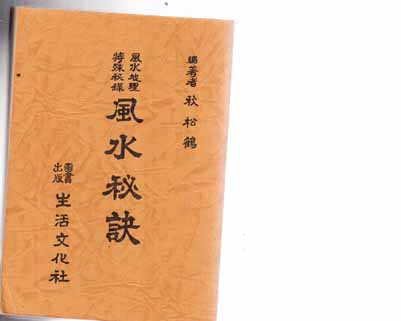 編著者 秋松鶴
風水地理
特殊
風水秘訣
圖書
出版
生活文化社